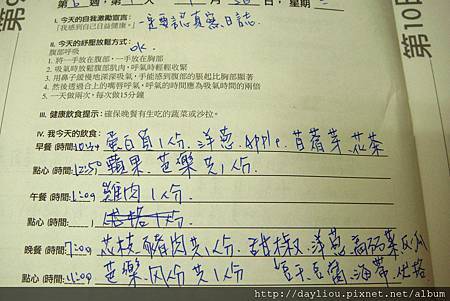 第10日
I. 今天的自我激勵宣言:
「我感到自己日益健康。」一定要認真寫日誌.
II. 今天的紓壓放鬆方式:
腹部呼吸 OK.
1. 將一手放在腹部,一手放在胸部
2. 吸氣時放鬆腹部肌肉,呼氣時輕輕收緊
3. 用鼻子緩慢地深深吸氣,手能感到腹部的脹起比胸部顯著
4. 然後透過合上的嘴唇呼氣,呼氣的時間應為吸氣時間的兩倍
5. 一天做兩次,每次做15分鐘
III. 健康飲食提示:確保晚餐有生吃的蔬菜或沙拉。
IV. 我今天的飲食:
早餐 (時間: 蛋白質1人分. 洋蔥. Apple. 苜蓿芽. 花茶
點心 (時間:12:50 蘋果. 芭樂共1人分.
午餐 (時間: 雞肉1人分
點心 (時間:
晚餐 (時間:7:00 豬肉共1人分. 甜椒. 洋蔥
點心 (時間: 芭樂. 共1人分 海帶.
http://dayliou.pixnet.net/album